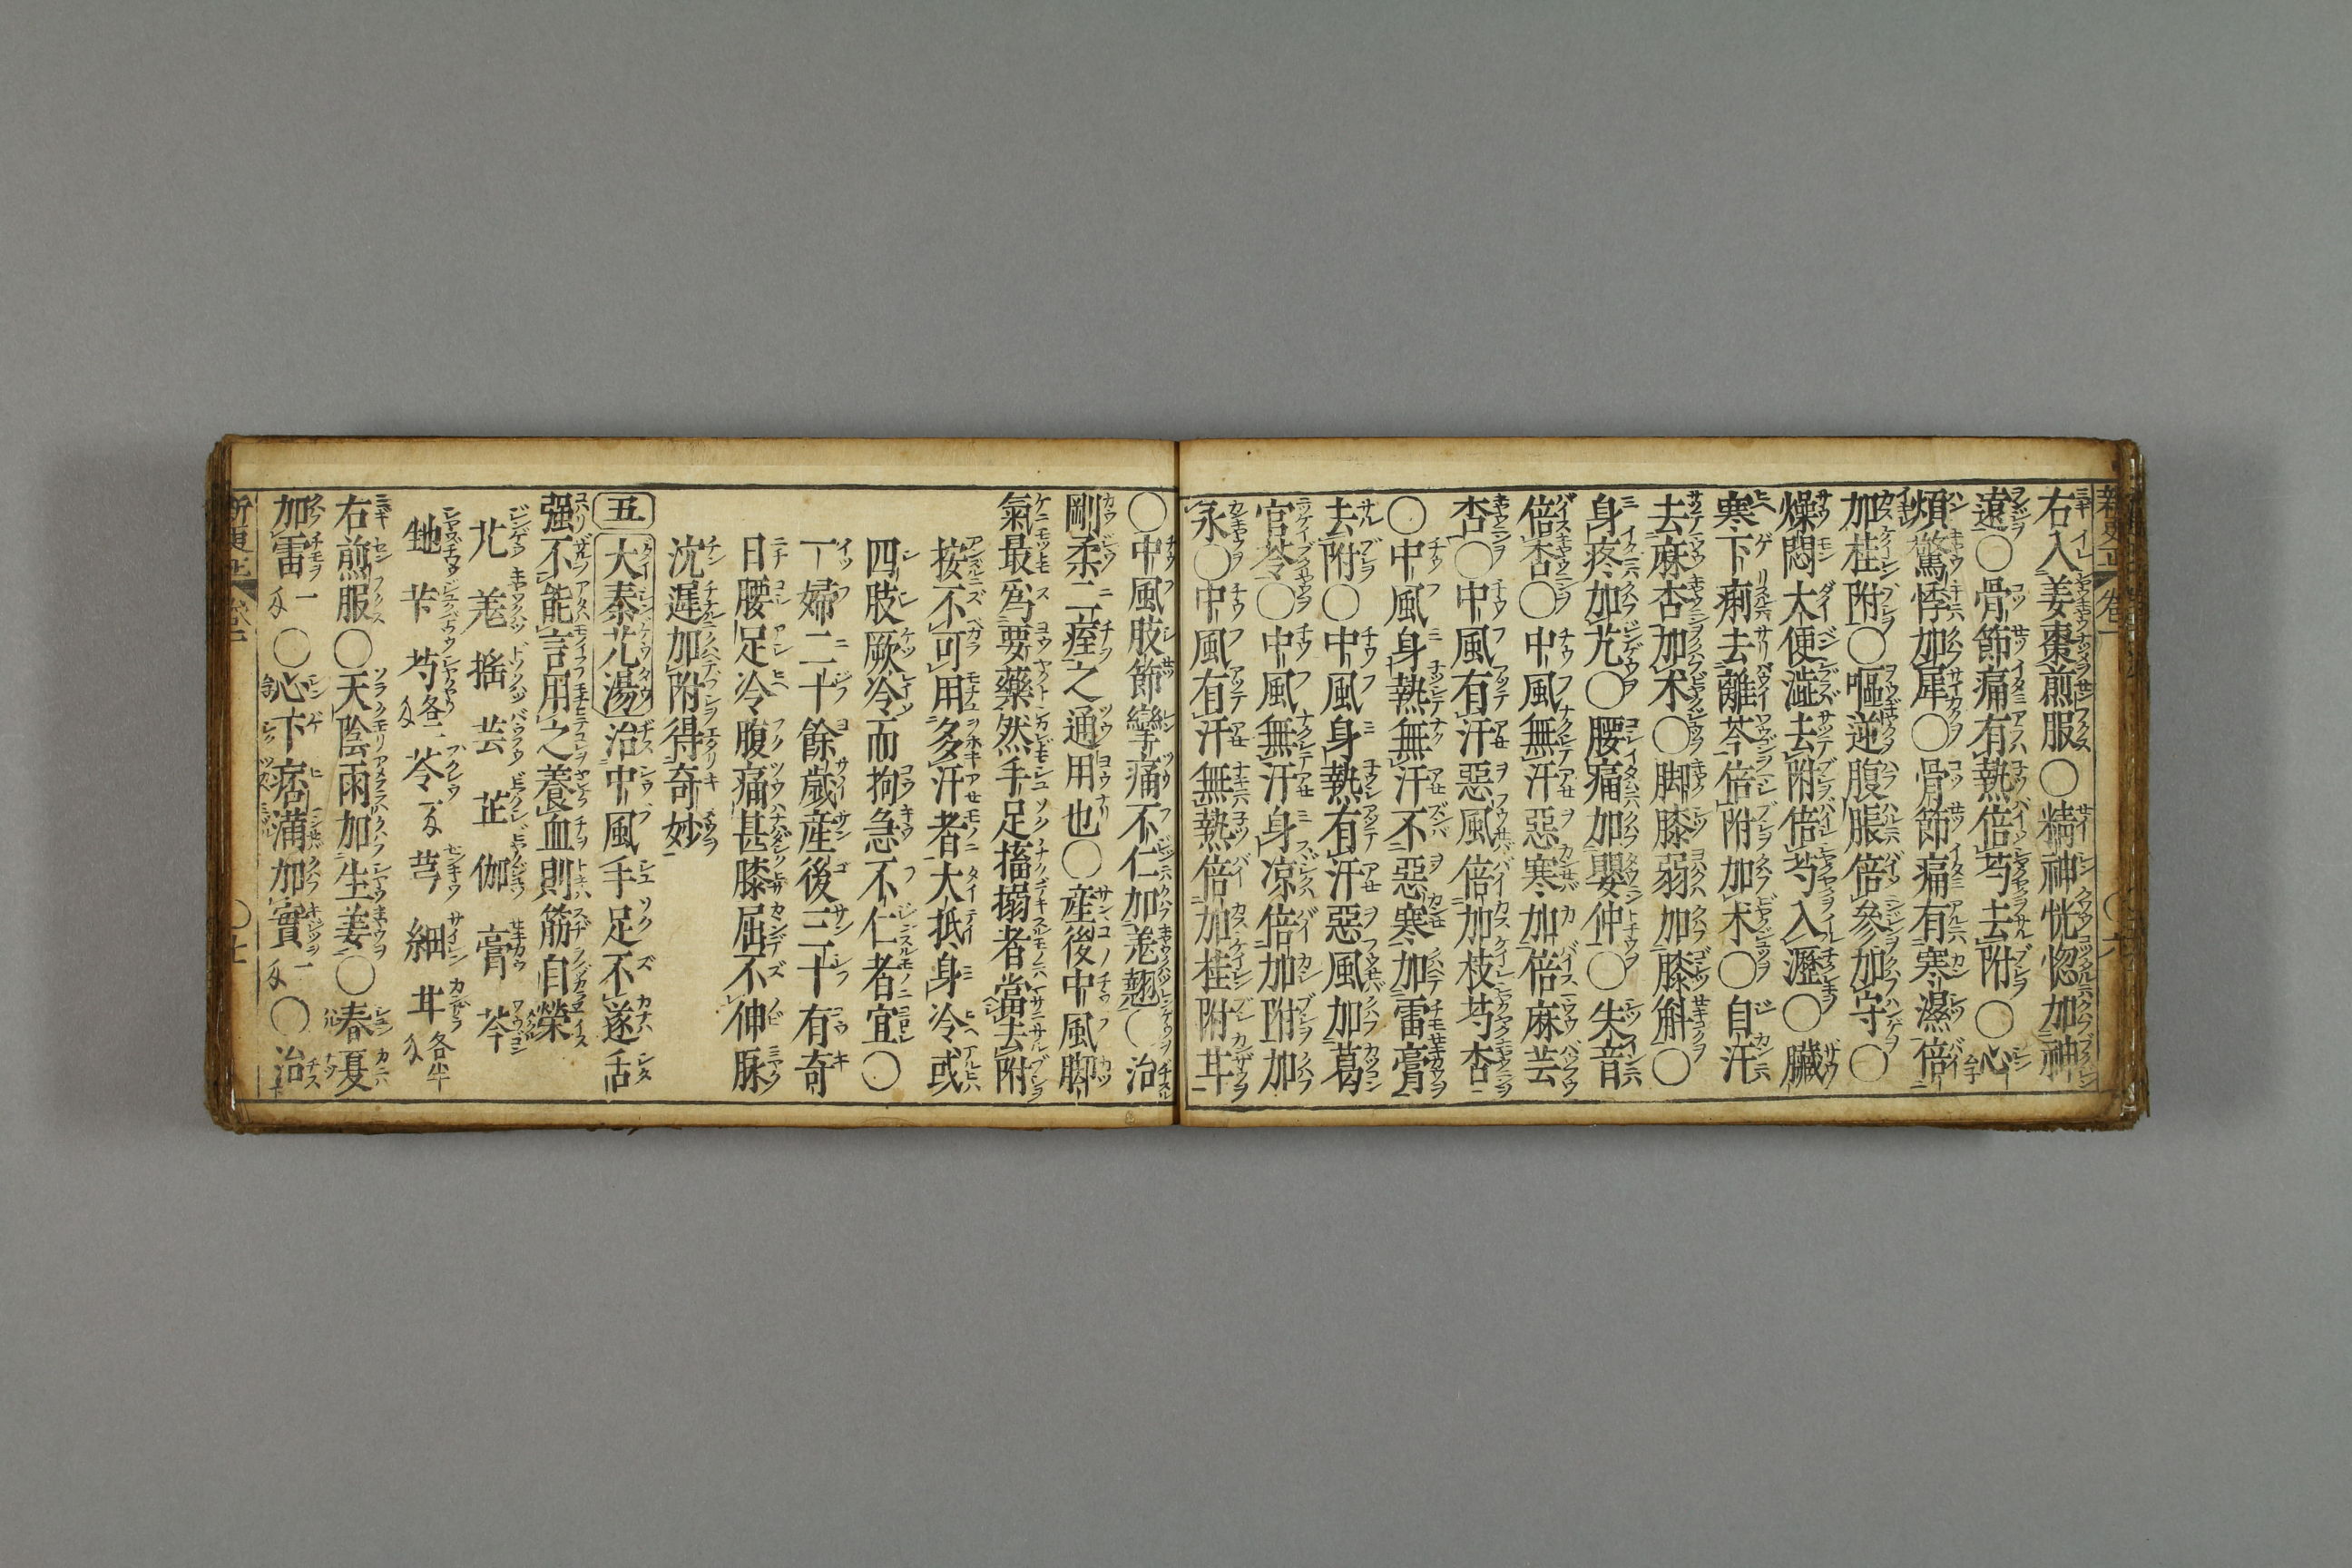 右入姜棗煎服〇精神恍惚加神
遠〇骨節痛有熱倍芍去附〇心
煩驚悸加犀〇骨節痛有寒濕倍
加桂附〇嘔逆腹脹倍參加守〇
燥悶大便澁去附倍芍入瀝〇臟
寒下痢去離芩倍附加朮〇自汗
去麻杏加朮〇脚膝弱加膝斛〇
身疼加艽〇腰痛加嬰仲〇失音
倍杏〇中風無汗惡寒加倍麻芸
杏〇中風有汗惡風倍加枝芍杏
〇中風身熱無汗不惡寒加雷膏
去附〇中風身熱有汗惡風加葛
官苓〇中風無汗身凉倍加附加
〇中風有汗無熱倍加桂附
〇中風肢節攣痛不仁加羌翹〇治
剛柔二痓之通用也〇産後中風
氣最爲要藥然手足搐搦者當去附
按不可用多汗者大抵身冷或
四肢厥冷而拘急不仁者宜〇
一婦二十餘歲産後三十有奇
日腰足冷腹痛甚膝屈不伸脉
沈遲加附得奇妙
五 大秦艽湯 治中風手足不遂舌
强不能言用之養血則筋自榮
艽 羌 搖 芸 芷 伽 膏 芩
芍 各二 苓 芎 細 各半
右煎服〇天陰雨加生姜〇春夏
加雷一〇心下痞滿加實一〇治